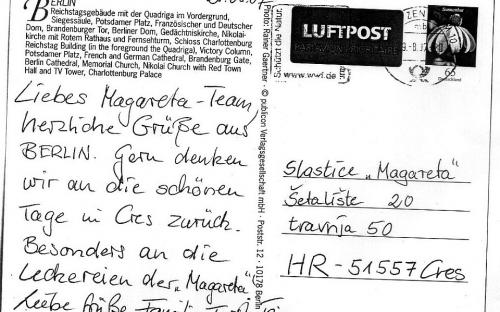 BERLIN
Reichstagsgebäude mit der Quadriga im Vordergrund,
Siegessäule, Potsdamer Platz, Französischer und Deutscher
Dom, Brandenburger Tor, Berliner Dom, Gedächtniskirche, Nikolai-
kirche mit Rotem Rathaus und Fernsehturm, Schloss Charlottenburg
Reichstag Building (in the foreground the Quadriga), Victory Column,
Potsdamer Platz, French and German Cathedral, Brandenburg Gate,
Berlin Cathedral, Memorial Church, Nikolai Church with Red Town
Hall and TV Tower, Charlottenburg Palace
Liebes Magareta-Team,
herzliche Grüße aus
BERLIN. Gern denken
wir an die schönen
Tage in Cres zurück.
Besonders an die
Leckereien der „Magareta"
Liebe Grüße
Photo: Rainer Gaertner · © publicon Verlagsgesellschaft mbH · Poststr. 12 · 10178 Berlin
Schützt die Natur!
www.wwf.de
LUFTPOST
PAR AVION PRIORITAIRE
65
Deutschland
Slastice „Magareta"
Šetalište 20
travnja 50
HR-51557 Cres